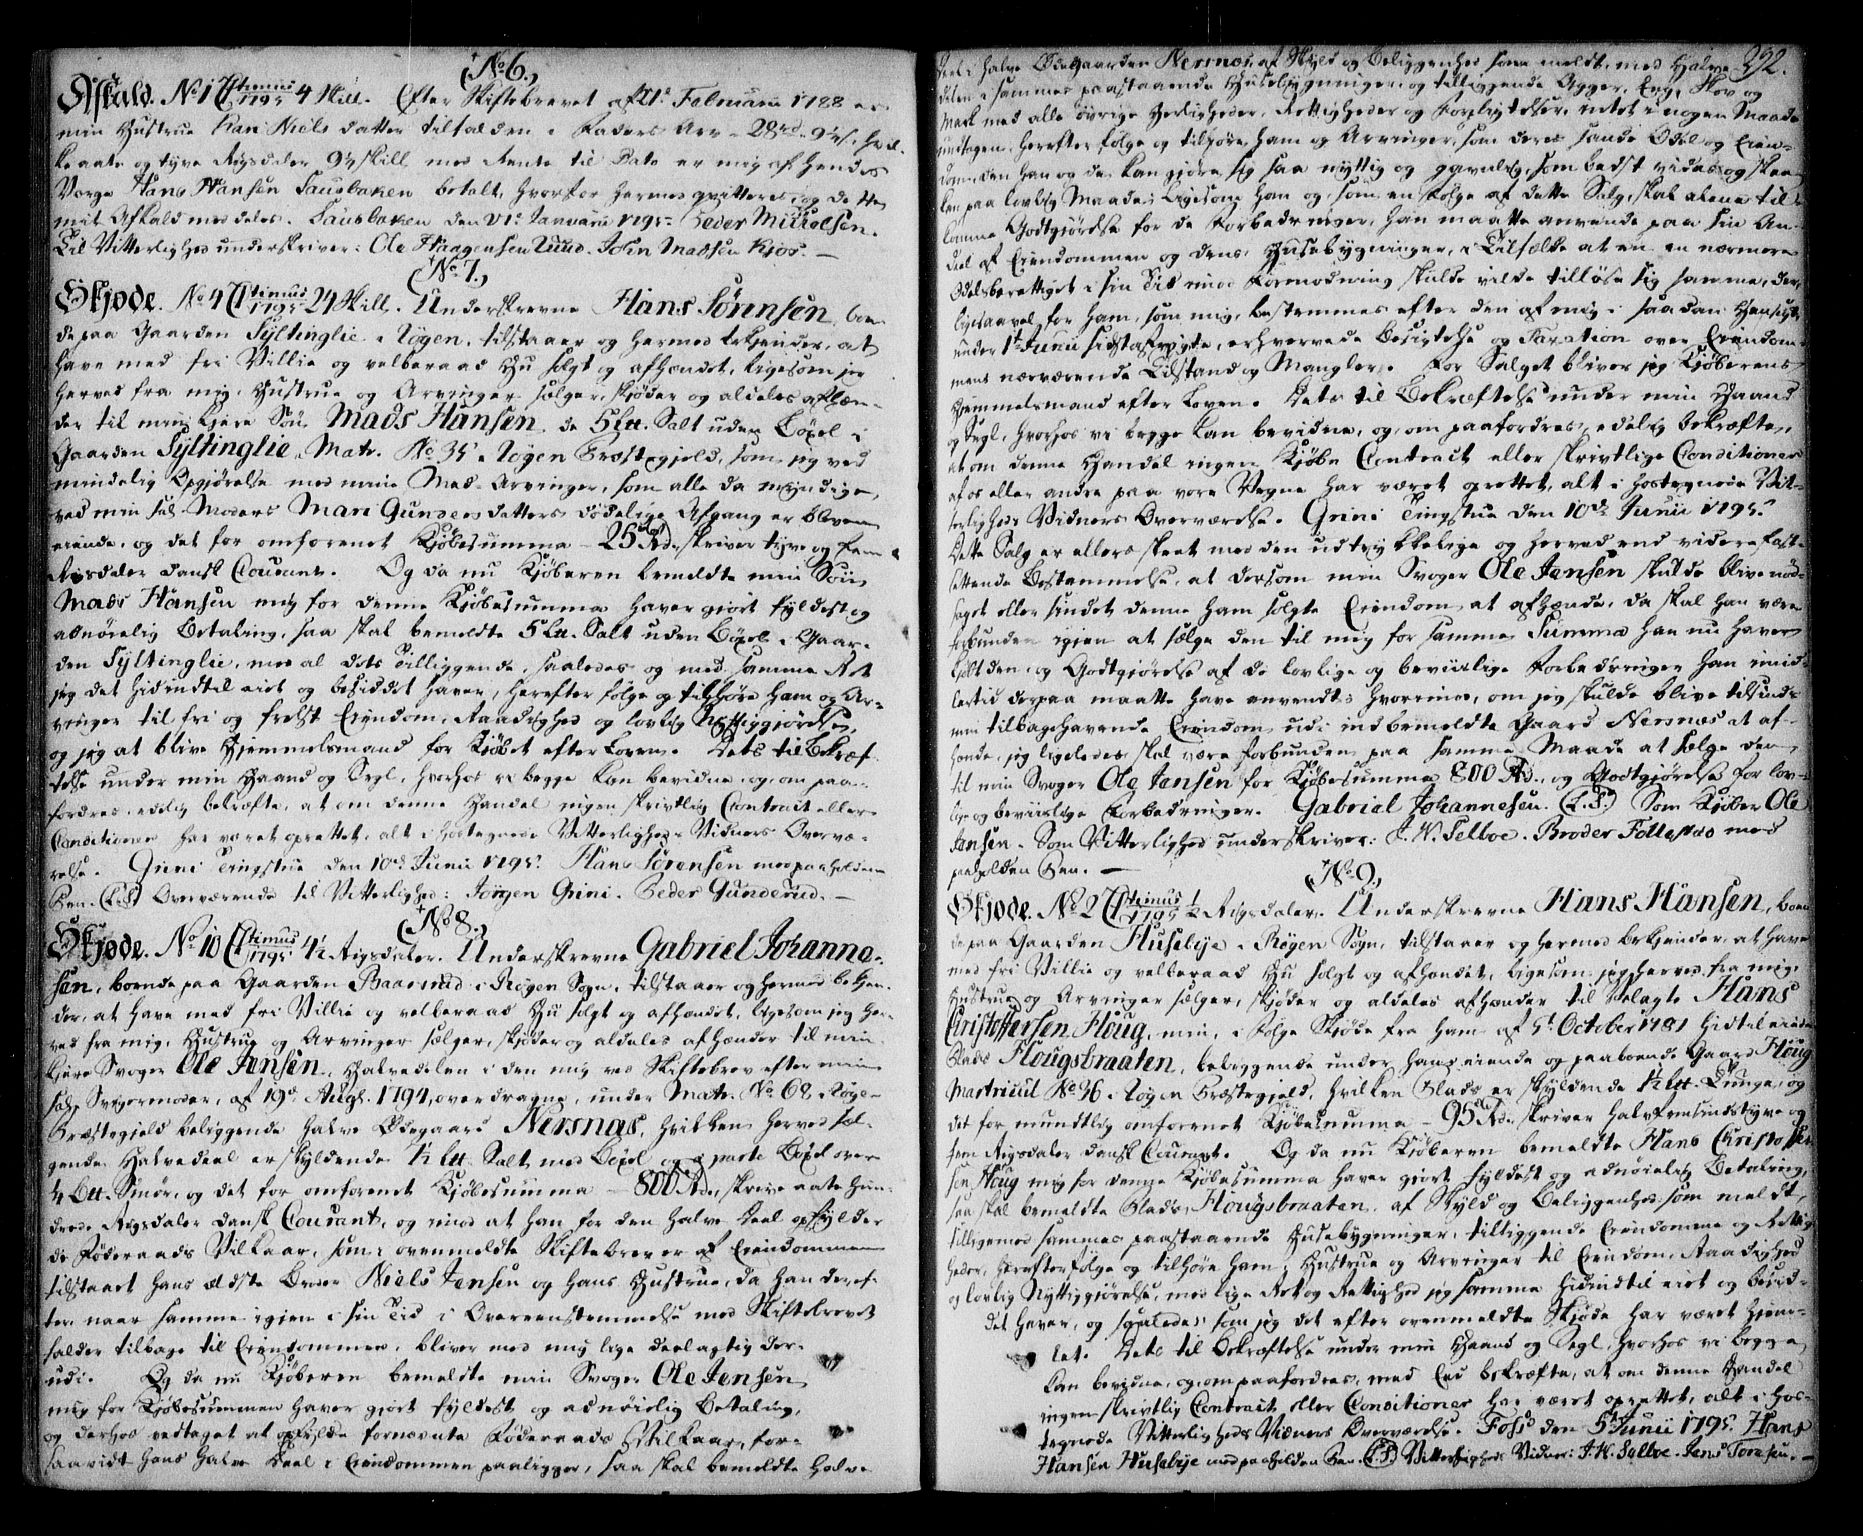 (No 6.)
Afkald. No 1 Cl. 1795 4 Skill. Efter Skiftebrevet af 21de Februarii 1788 er
min Hustrue Kari Niels datter tilfalden i Faders Arv 28 rd. 9½ s. hvil-
ke aate og tyve Rigsdaler 9½ Skill med Rente til Dato er mig af hendes
Værge Hans Hansen Sausbaken betalt, hvorfor hermed qvitteres, og dette
mit Afkald meddeles. Sausbaken den 21de Januarii 1795. Peder Michelsen.
Til Vitterlighed underskriver: Ole Haagensen Lund. John Madsen Kjos. —
(No 7.)
Skjøde. No 4 Cl. 1795 24 Skill. Underskrevne Hans Sørensen, boen-
de paa Gaarden Syltinglie i Røgen, tilstaaer og hermed bekjender, at
have med fri Villie og velberaad Hu solgt og afhændet, ligesom jeg
herved fra mig, Hustrue og Arvinger sælger, skjøder og aldeles afhæn-
der til min kjære Søn Mads Hansen de 5 Lll. Salt uden Bøxel i
Gaarden Syltinglie, Matr. No 35 i Røgen Præstegjeld, som jeg ved
mindelig Opgjørelse med mine Med-Arvinger, som alle da myndige,
ved min sal. Moders Mari Gundersdatters dødelige Afgang er bleven
eiende, og det for omforenet Kjøbesumma — 25 Rd. skriver tyve og fem
Rigsdaler dansk Courant. Og da nu Kjøberen bemeldte min Søn
Mads Hansen mig for denne Kjøbesumma haver giort fyldest og
adnøielig Betaling, saa skal bemeldte 5 Lll. Salt uden Bøxel i Gaar-
den Syltinglie, med al dets Tilliggende, saaledes og med samme Ret
jeg det hidindtil eiet og besiddet haver, herefter følge og tilhøre ham og Ar-
vinger til fri og frelst Eiendom, Raadighed og lovlig Nyttiggjørelse,
og jeg at blive Hjemmelsmand for Kjøbet efter Loven. Dets til Bekræf-
telse under min Haand og Segl, hvorhos vi begge kan bevidne, og, om paa-
fordres, edelig bekræfte, at om denne Handel ingen skrivtlig Contract eller
Conditioner har været oprettet, alt i hostegnede Vitterligheds Vidners Overvæ-
relse. Grini Tingstue den 10de Junii 1795. Hans Sørensen med paaholden
Pen. (L.S.) Overværende til Vitterlighed: Jørgen Grini. Peder Gunderud. —
(No 8.)
Skjøde. No 10 Cl. 1795 4½ Rigsdaler. Underskrevne Gabriel Johanne-
sen, boende paa Gaarden Baarsrud i Røgen Sogn, tilstaaer og hermed bekjen-
der, at have med fri Villie og velberaad Hu solgt og afhændet, ligesom jeg her-
ved fra mig, Hustrue og Arvinger sælger, skjøder og aldeles afhænder til min
kjære Svoger Ole Jensen, Halvedelen i den mig ved Skiftebrev efter min
sal. Svigermoder, af 19de Augs. 1794, overdragne, under Matr. No 68 i Røgens
Præstegjeld beliggende halve Ødegaard Nersnæs, hvilken herved sæl-
gende Halvedeel er skyldende ½ Lll. Salt med Bøxel og a parte Bøxel over
¼ Lll. Smør, og det for omforenet Kjøbesumma — 800 Rd., skriver aate hun-
drede Rigsdaler dansk Courant, og imod at han for den halve Deel opfylder
de Føderaads Vilkaar, som i ovenmeldte Skiftebrev er af Eiendommen
tilstaaet hans ældste Broder Niels Jensen og hans Hustrue, da han deref-
ter naar samme igjen i sin Tid i Overeensstemmelse med Skiftebrevet
falder tilbage til Eiendommen, bliver med mig lige deelagtig der-
udi. Og da nu Kjøberen bemeldte min Svoger Ole Jensen
mig for Kjøbesummen haver giort fyldest og adnøielig Betaling,
og derhos vedtaget at opfylde fornævnte Føderaads Vilkaar, for-
saavidt hans halve Deel i Eiendommen paaligger, saa skal bemeldte halve
392.
Deel i halve Ødegaarden Nersnæs, af Skyld og Beliggenhed som meldt, med Halve-
delen i sammes paastaaende Huusebygninger og tilliggende Agger, Eng, Skov og
Mark med alle øvrige Herligheder, Rettigheder og Forplygtelser, intet i nogen Maade
undtagen, herefter følge og tilhøre ham og Arvinger, som deres sande Odel og Eien-
dom, den han og de kan gjøre sig saa nyttig og gavnlig, som bedst vides og skee
kan paa lovlig Maade; ligesom han og, som en Følge af dette Salg, skal alene til-
komme Godtgjørelse for de Forbedringer, han maatte anvende paa sin An-
deel af Eiendommen og dens Huusebygninger, i Tilfælde at en en nærmere
Odelsberettiget i sin Tid imod Formodning skulde vilde tilløse sig samme, der
ligesaavel for ham, som mig, bestemmes efter den af mig i saadan Hensigt
under 1te Junii sidstafvigte, erhvervede Besigtelse og Taxation over Eiendom-
mens nærværende Tilstand og Mangler. For Salget bliver jeg Kjøberens
Hjemmelsmand efter Loven. Dets til Bekræftelse under min Haand
og Segl, hvorhos vi begge kan bevidne, og, om paafordres, edelig bekræfte,
at om denne Handel ingen Kjøbe Contract eller skrivtlige Conditioner
af os eller andre paa vore Vegne har været oprettet, alt i hostegnede Vit-
terligheds Vidners Overværelse. Grini Tingstue den 10de Junii 1795.
Dette Salg er ellers skeet med den udtrykkelige og herved end videre fast-
settende Bestemmelse, at dersom min Svoger Ole Jensen skulde blive nød-
saget eller sindet denne ham solgte Eiendom at afhænde, da skal han være
forbunden igjen at sælge den til mig for samme Summa han nu haver
kjøbt den, og Godtgjørelse af de lovlige og bevislige Forbedringer han imid-
lertid derpaa maatte have anvendt; hvorimod, om jeg skulde blive tilsinds
min tilbagehavende Eiendom udi indbemeldte Gaard Nersnæs at af-
hænde, jeg ligeledes skal være forbunden paa samme Maade at sælge den
til min Svoger Ole Jensen for Kjøbesumma 800 Rd., og Godtgjørelse for lov-
lige og bevislige Forbedringer. Gabriel Johannesen. (L.S.) Som Kjøber Ole
Jensen. Som Vitterlighed underskriver: J. W. Selboe. Broder Follestad med
paaholden Pen. —
(No 9.)
Skjøde. No 2 Cl. 1795 ½ Rigsdaler. Underskrevne Hans Hansen, boen-
de paa Gaarden Husebye i Røgen Sogn, tilstaaer og hermed bekjender, at have
med fri Villie og velberaad Hu solgt og afhændet, ligesom jeg herved fra mig,
Hustrue og Arvinger sælger, skjøder og aldeles afhænder til Velagte Hans
Christoffersen Houg, min, i Følge Skjøde fra ham af 5te October 1781 hidtil eiende
Plads Hougsbraaten, beliggende under hans eiende og paaboende Gaard Houg
Matricul No 36 i Røgen Præstegjeld, hvilken Plads er skyldende ½ Lll. Tunge, og
det for mundtlig omforenet Kjøbesumma — 95 Rd. skriver halvfemsindstyve og
fem Rigsdaler dansk Courant. Og da nu Kjøberen bemeldte Hans Christoffer-
sen Houg mig for denne Kjøbesumma haver giort fyldest og adnøielig Betaling,
saa skal bemeldte Plads Hougsbraaten, af Skyld og Beliggenhed som meldt,
tilligemed sammes paastaaende Huusebygninger, tilliggende Eiendomme og Rettig-
heder, herefter følge og tilhøre ham, Hustrue og Arvinger til Eiendom, Raadighed
og lovlig Nyttiggjørelse, med lige Ret og Rettighed jeg samme hidindtil eiet og besid-
det haver, og saaledes som jeg det efter ovenmeldte Skjøde har været hjem-
let. Dets til Bekræftelse under min Haand og Segl, hvorhos vi begge
kan bevidne, og, om paafordres, med Eed bekræfte, at om denne Handel
ingen skrivtlig Contract eller Conditioner har været oprettet, alt i hos-
tegnede Vitterligheds Vidners Overværelse. Foss den 5te Junii 1795. Hans
Hansen Husebye med paaholden Pen. (L.S.) Vitterligheds Vidner: J. W. Selboe. Jens Toresen. —